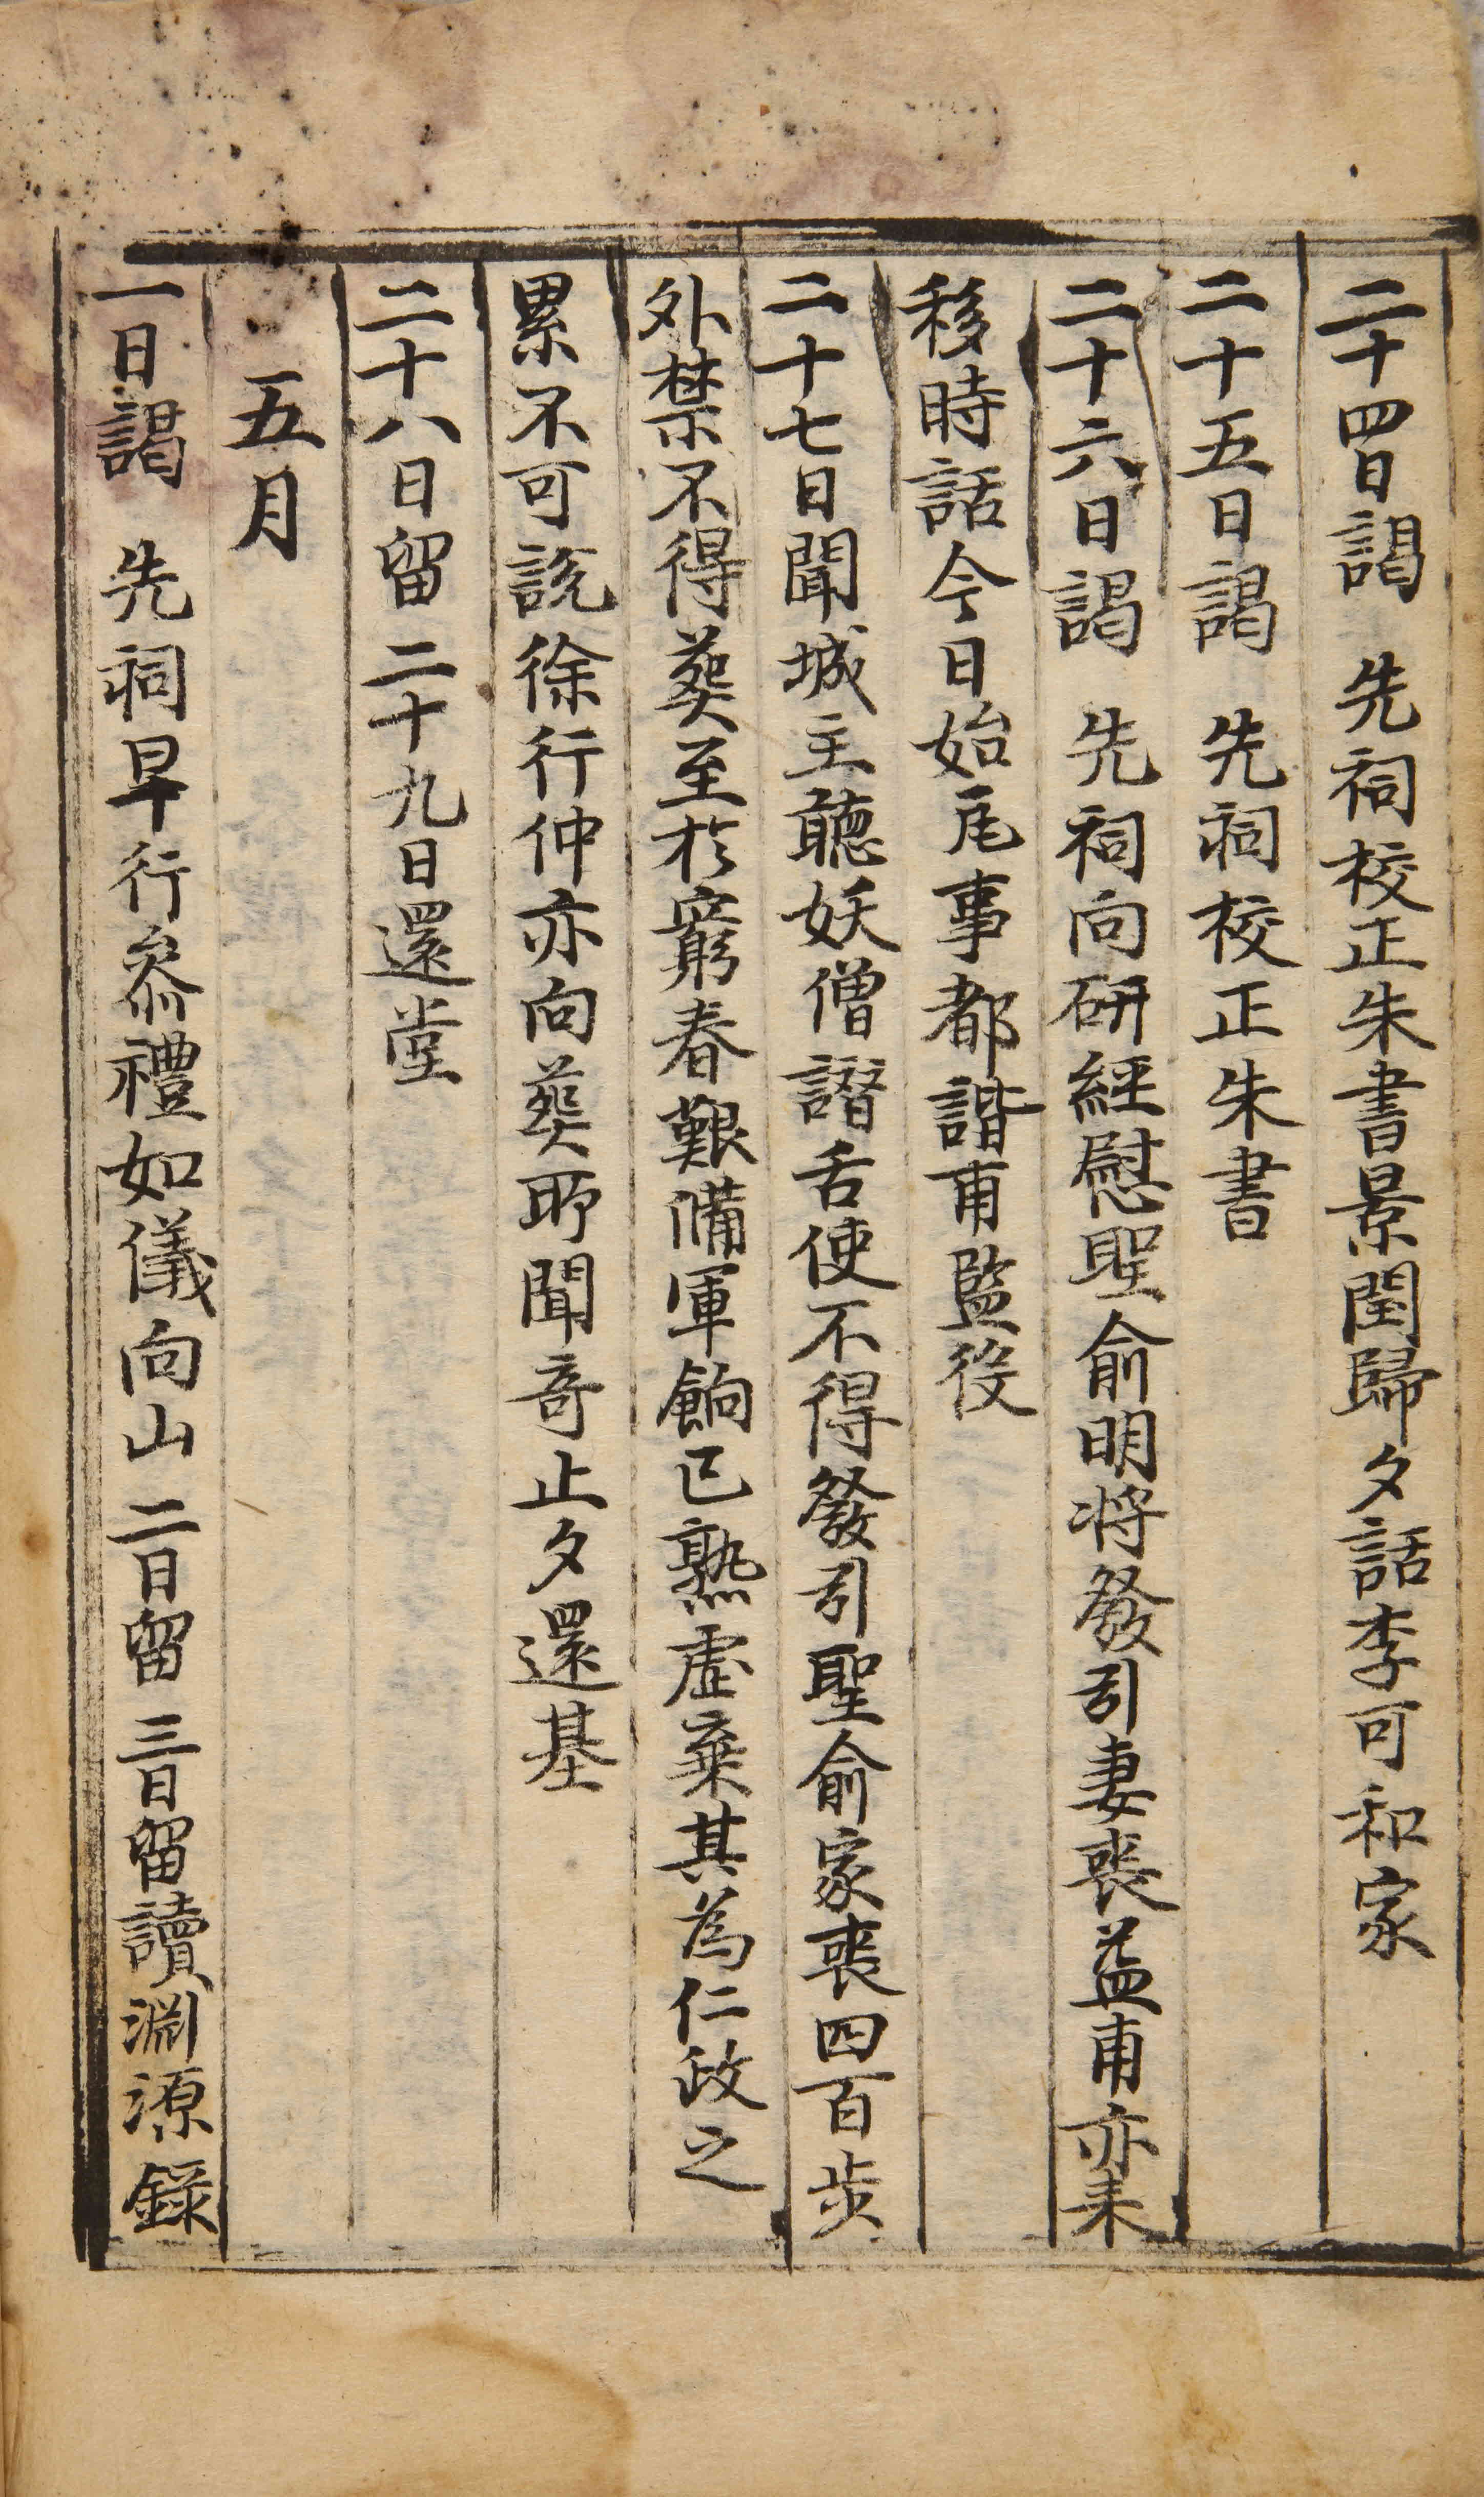 二十四日謁 先祠校正朱書景閏歸夕話李可和家
二十五日謁 先祠校正朱書
二十六日謁 先祠向研經慰聖俞明将發引妻喪益甫亦来
移時話今日始瓦事都諧甫監役
二十七日聞城主聽妖僧譖舌使不得發引聖俞家喪四百步
外禁不得葬至於窮春艱備軍餉已熟虛棄其為仁政之
累不可説徐行仲亦向葬所聞奇止夕還基
二十八日留 二十九日還堂
五月
一日謁 先祠早行叅禮如儀向山 二日留 三日留讀淵源錄